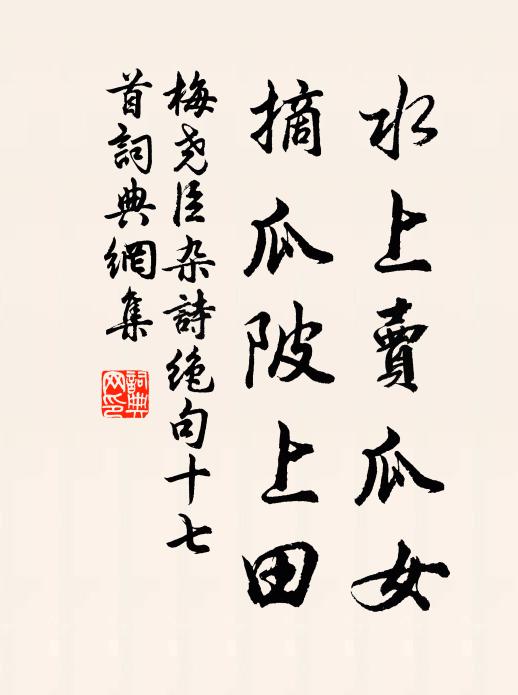 水上賣瓜女
摘瓜陂上田
梅尧臣杂詩絶句十七
首詞典網集
詞典
网印